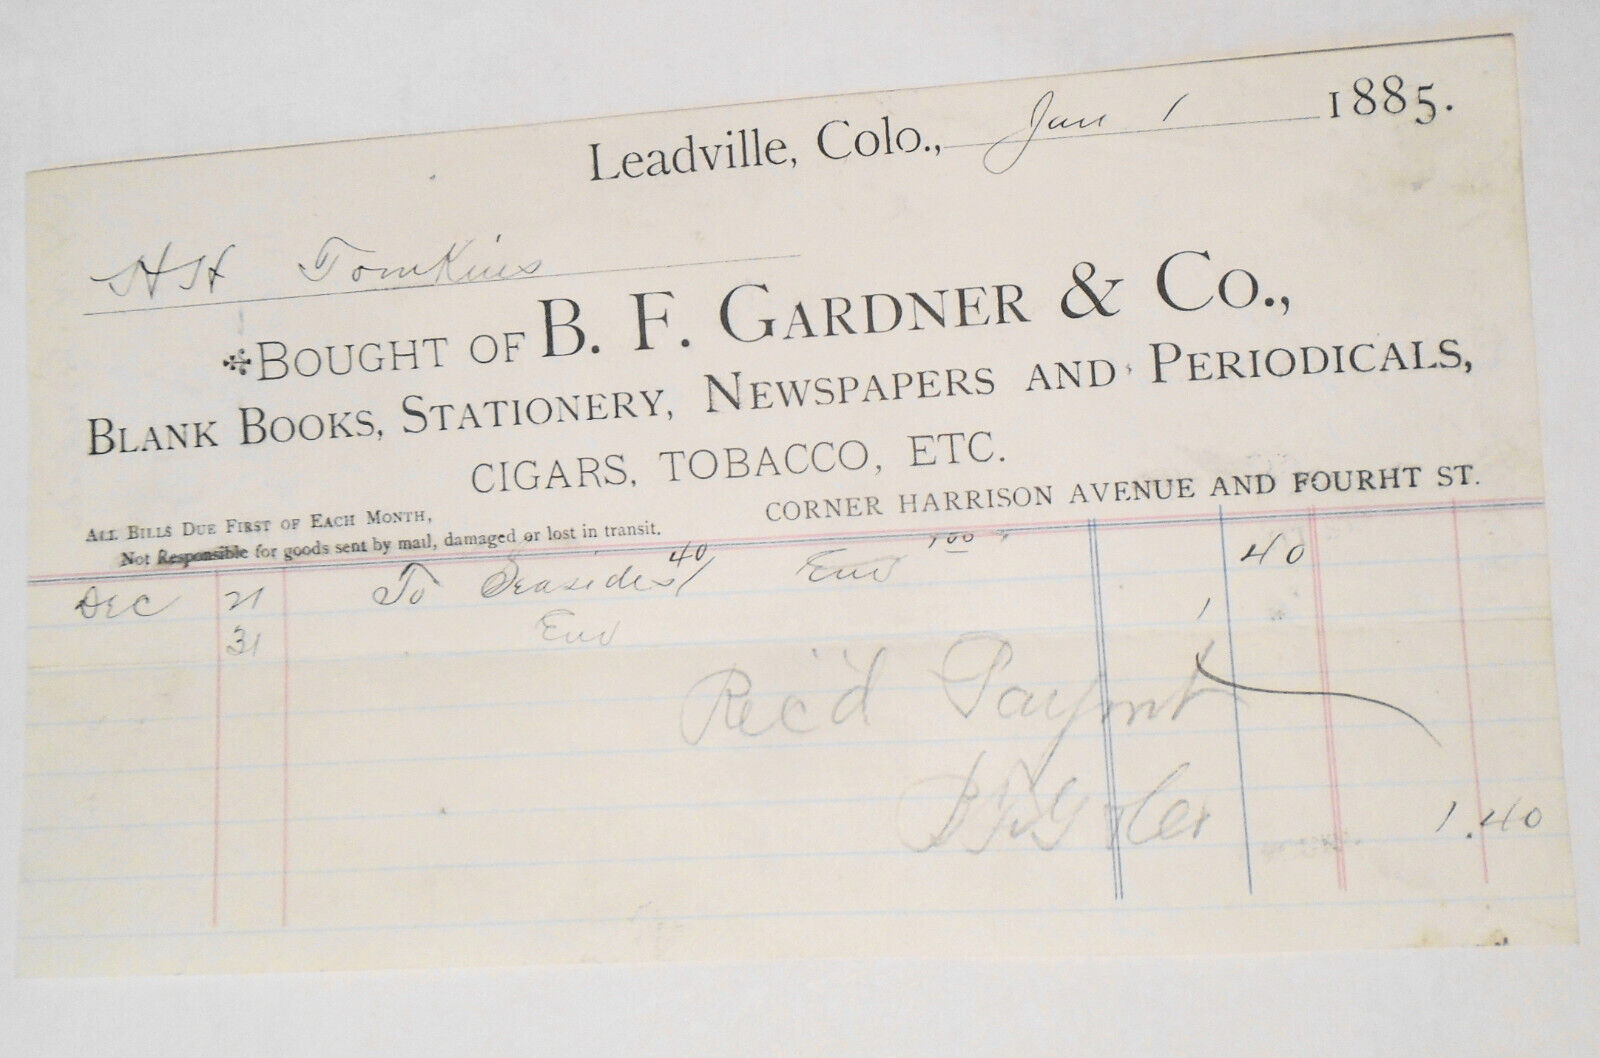 Leadville, Colo., Jan 1 1885.
HH Tomkins
BOUGHT OF B. F. GARDNER & CO.,
BLANK BOOKS, STATIONERY, NEWSPAPERS AND PERIODICALS,
CIGARS, TOBACCO, ETC.
CORNER HARRISON AVENUE AND FOURHT ST.
ALL BILLS DUE FIRST OF EACH MONTH,
Not Responsible for goods sent by mail, damaged or lost in transit.
Dec 21 To Seasides 40 Env 1 00 40
31 Env 1
Rec'd Paymnt
1.40